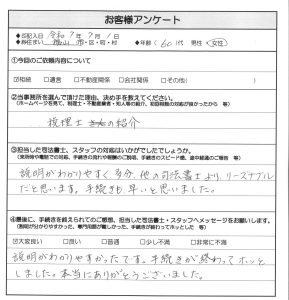 お客様アンケート
◆ご記入日 令和7年7月1日
◆お住まい 福山 市・区・町・村 ◆年齢（60）代 男性・女性
①今回のご依頼内容について
☑相続 □遺言 □不動産関係 □会社関係 □その他（ ）
②当事務所を選んで頂けた理由、決め手を教えてください。
（ホームページを見て、税理士・不動産業者・知人等の紹介、初回相談の対応が良かったから 等）
税理士 の紹介
③担当した司法書士、スタッフの対応はいかがでしたでしょうか。
（来所時や電話での対応、手続きの流れや報酬のご説明、手続きのスピード感、途中経過のご報告 等）
説明がわかりやすく多分、他の司法書士より、リーズナブル
だと思います。手続きも早いと思いました。
④最後に、手続きを終えられてのご感想、担当した司法書士・スタッフへメッセージをお願いします。
（説明が分かりやすかった、専門用語が難しかった、手続きが終わってホッとした 等）
☑大変良い □良い □普通 □少し不満 □非常に不満
説明がわかりやすかったです。手続きが終わってホッと
しました。本当にありがとうございました。